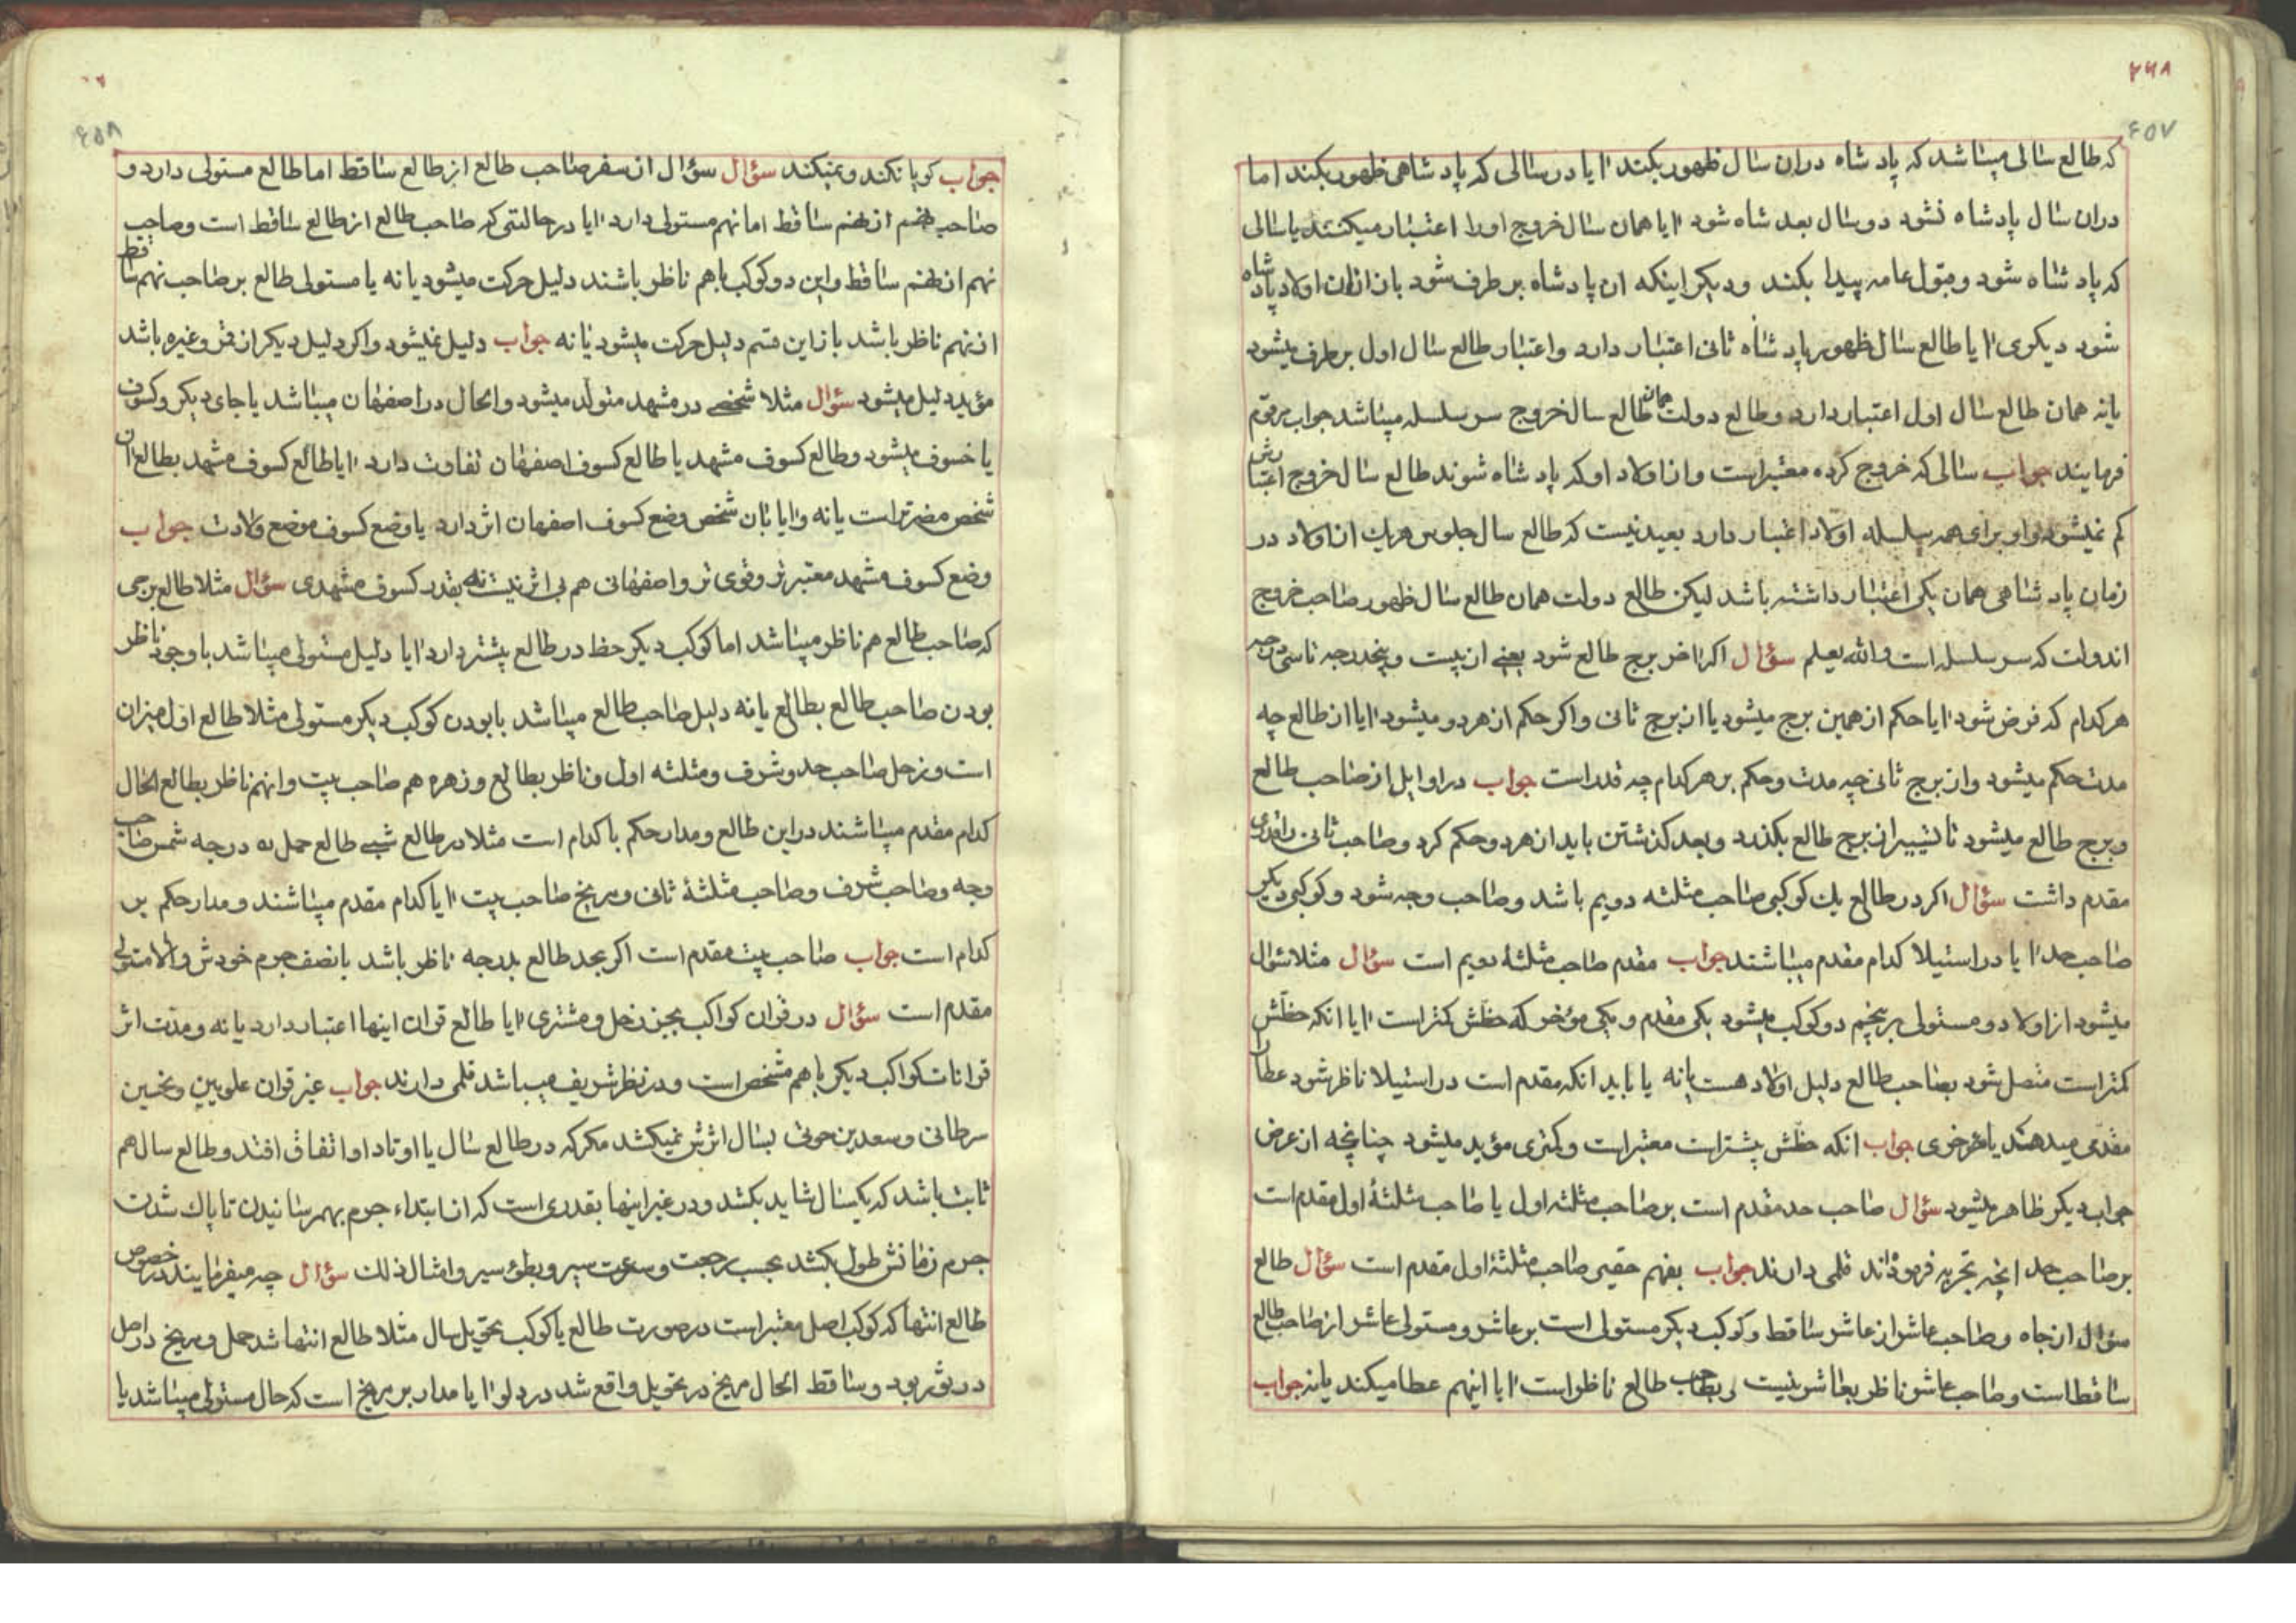 ۲۶۸
۴۵۷
که طالع سالی میباشد که پادشاه دران سال ظهور بکند ایا در سالی که پادشاهی ظهور بکند اما
دران سال پادشاه نشود دو سال بعد شاه شود ایا همان سال خروج اورا اعتبار میکنند یا سالی
که پادشاه شود و قبول عامه پیدا بکند و دیکر اینکه ان پادشاه برطرف شود باز ازان اولاد پادشاه
شود دیکری ایا طالع سال ظهور پادشاه ثانی اعتبار دارد و اعتبار طالع سال اول برطرف میشود
یانه همان طالع سال اول اعتبار دارد و طالع دولت همان طالع سال خروج سرسلسله میباشد جواب مرقوم
فرمایند جواب سالی که خروج کرده معتبر است و از اولاد او که پادشاه شوند طالع سال خروج اعتبارش
کم نمیشود و او برای همه سلسله اولاد اعتبار دارد بعید نیست که طالع سال جلوس هریك از اولاد در
زمان پادشاهی همان یکی اعتبار داشته باشد لیکن طالع دولت همان طالع سال ظهور صاحب خروج
اندولت که سرسلسله است والله یعلم سؤال اکر اخر برج طالع شود یعنی از بیست و پنجدرجه تا سی درجه
هرکدام که فرض شود ایا حکم از همین برج میشود یا از برج ثانی و اکر حکم از هردو میشود ایا از طالع چه
مدت حکم میشود و از برج ثانی چه مدت و حکم بر هرکدام چه قدر است جواب در اوایل از صاحب طالع
و برج طالع میشود تا تسییر از برج طالع بکذرد و بعد کذشتن باید از هردو حکم کرد و صاحب ثانی را
مقدم داشت سؤال اکر در طالع یك کوکبی صاحب مثلثه دویم باشد و صاحب وجه شود و کوکبی دیکر
صاحب حد ایا در استیلا کدام مقدم میباشند جواب مقدم صاحب مثلثهٔ دویم است سؤال مثلا سؤال
میشود از اولاد و مستولی بر پنجم دو کوکب میشود یکی مقدم و یکی مؤخر که حظش کمتر است ایا انکه حظش
کمتر است متصل شود بصاحب طالع دلیل اولاد هست یانه یا باید انکه مقدم است در استیلا ناظر شود عطا ان
مقدمی میدهند یا مؤخری جواب انکه حظش بیشتر است معتبر است و کمتری مؤید میشود چنانچه از عرض
جواب دیکر ظاهر میشود سؤال صاحب حد مقدم است بر صاحب مثلثه اول یا صاحب مثلثهٔ اول مقدم است
بر صاحب حد انچه تجربه فرموده‌اند قلمی دارند جواب بفهم حقیر صاحب مثلثهٔ اول مقدم است سؤال طالع
سؤال از جاه و صاحب عاشر از عاشر ساقط و کوکب دیکر مستولی است بر عاشر و مستولی عاشر از صاحب طالع
ساقط است و صاحب عاشر ناظر بعاشر نیست و بصاحب طالع ناظر است ایا اینهم عطا میکند یانه جواب
۴۵۸
جواب کویا نکند و نمیکند سؤال سؤال از سفر صاحب طالع از طالع ساقط اما طالع مستولی دارد و
صاحب نهم از نهم ساقط اما نهم مستولی دارد ایا در حالتی که صاحب طالع از طالع ساقط است و صاحب
نهم از نهم ساقط و این دو کوکب باهم ناظر باشند دلیل حرکت میشود یا نه یا مستولی طالع بر صاحب نهم ساقط
از نهم ناظر باشد باز این قسم دلیل حرکت میشود یا نه جواب دلیل نمیشود و اکر دلیل دیکر از قمر و غیره باشد
مؤید دلیل میشود سؤال مثلا شخصی در مشهد متولد میشود و الحال در اصفهان میباشد یا جای دیکر و کسوف
یا خسوف میشود و طالع کسوف مشهد با طالع کسوف اصفهان تفاوت دارد ایا طالع کسوف مشهد بطالع ان
شخص مضرتر است یا نه و ایا بان شخص وضع کسوف اصفهان اثر دارد یا وضع کسوف موضع ولادت جواب
وضع کسوف مشهد معتبرتر و قوی تر و اصفهانی هم بی اثر نیست نه بقدر کسوف مشهدی سؤال مثلا طالع برجی
که صاحب طالع هم ناظر میباشد اما کوکب دیکر حظ در طالع بیشتر دارد ایا دلیل مستولی میباشد با وجود ناظر
بودن صاحب طالع بطالع یا نه دلیل صاحب طالع میباشد با بودن کوکب دیکر مستولی مثلا طالع اول میزان
است و زحل صاحب حد و شرف و مثلثه اول و ناظر بطالع و زهره هم صاحب بیت و انهم ناظر بطالع الحال
کدام مقدم میباشند در این طالع و مدار حکم با کدام است مثلا در طالع شبی طالع حمل نه درجه شمس صاحب
وجه و صاحب شرف و صاحب مثلثهٔ ثانی و مریخ صاحب بیت ایا کدام مقدم میباشند و مدار حکم بر
کدام است جواب صاحب بیت مقدم است اکر بحد طالع بدرجه ناظر باشد یا بنصف جرم خودش والا مستولی
مقدم است سؤال در قران کواکب بجز زحل و مشتری ایا طالع قران اینها اعتبار دارد یا نه و مدت اثر
قرانات کواکب دیکر باهم مشخص است و در نظر شریف میباشد قلمی دارند جواب غیر قران علویین و نحسین
سرطانی و سعدین حوتی بسال اثرش نمیکشد مکر که در طالع سال یا اوتاد او اتفاق افتد و طالع سال هم
ثابت باشد که یکسال شاید بکشد و در غیر اینها بقدری است که از ابتداء جرم بهم رسانیدن تا پاك شدن
جرم زمانش طول بکشد بحسب رجعت و سرعت سیر و بطؤ سیر و امثال ذلك سؤال چه میفرمایند در خصوص
طالع انتها که کوکب اصل معتبر است در صورت طالع یا کوکب تحویل سال مثلا طالع انتها شد حمل و مریخ در اصل
در بود و ساقط الحال مریخ در تحویل واقع شد در دلو ایا مدار بر مریخ است که حال مستولی میباشد یا